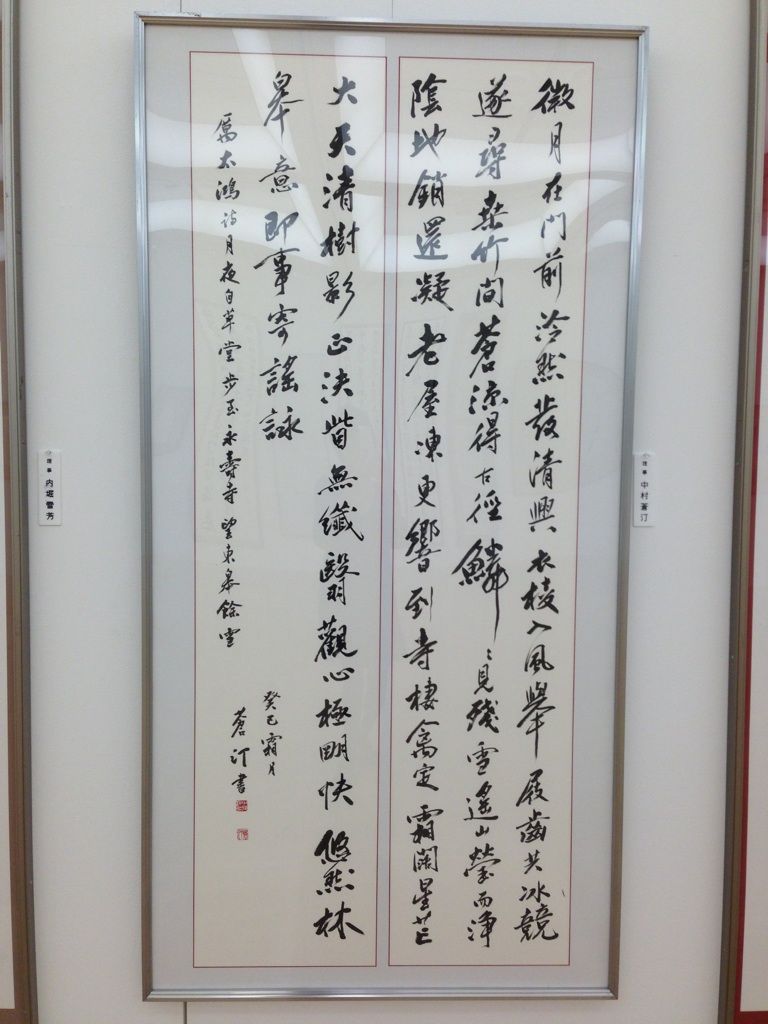 微月在門前泠然發清興衣棱入風舉屐齒共冰競
遂尋桒竹間蒼涼得古徑鱗〻見殘雪遙山瑩而浄
陰地銷還凝老屋凍更響到寺棲禽定霜闊星芒
大天清樹影正決眥無纖翳觀心極明快悠然林
皋意即事寄謠詠
厲太鴻詩月夜自草堂步至永壽寺望東皋餘雪
癸巳霜月
蒼汀書
理事 中村蒼汀
理事 内堀雪芳